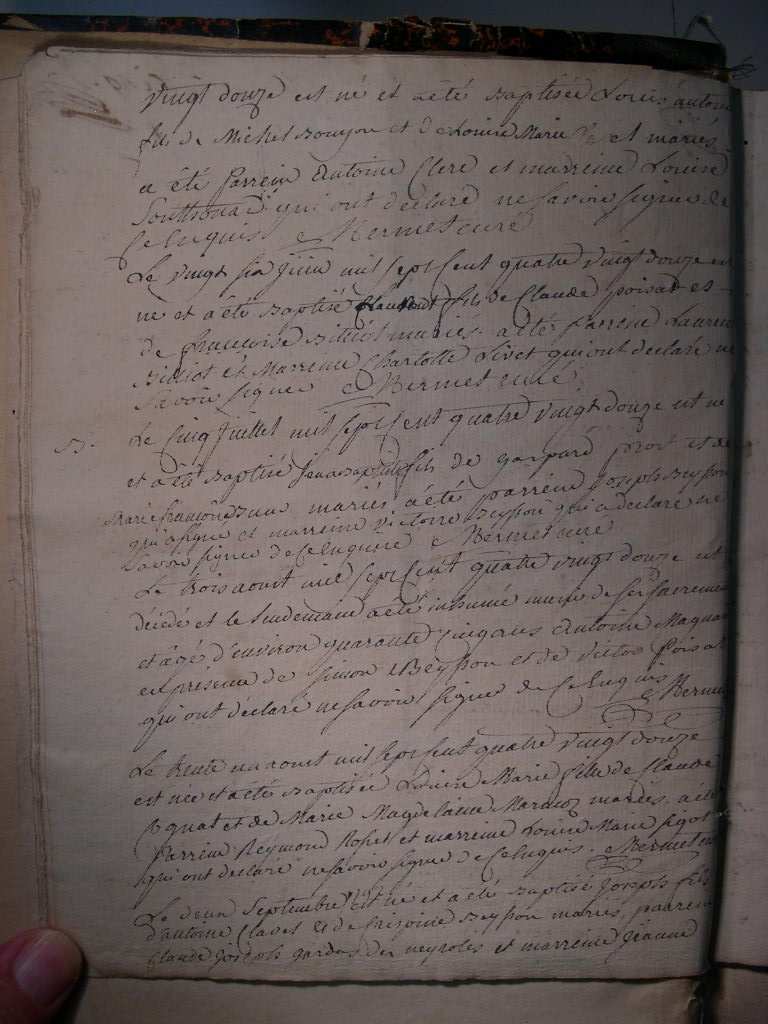 vingt douze est né et a été Baptisée Louis antoine
fils de Michel Bouyon et de Louise Marie et mariés
a été parrein Antoine Clerc et marreine Louise
qui ont déclaré ne savoir signer de
ce Enquis Bermet curé
Le vingt six juin mil sept cent quatre vingt douze est
né et a été Baptisé fils de Claude poisat et
de francoise Billiot mariés a été parrein Laurent
Billiot et Marreine Charlotte Livet qui ont declaré ne
savoir signer Bermet curé
B. Le cinq juillet mil sept cent quatre vingt douze est ne
et a été Baptisé jean Baptiste fils de gaspard prost et de
Marie francoise mariés a été parrein joseph Beysson
qui a signé et marreine Victoire Beysson qui a declaré ne
savoir signer de ce enquise Bermet curé
Le trois aoust mil sept cent quatre vingt douze est
décédé et le lendemain a été inhumé muni de ses sacremens
et agé d'environ quarante cinq ans Antoine Magnan
en présence de simon Beysson et de victor Poisat
qui ont déclaré ne savoir signer de ce enquis Bermet
Le trente un aoust mil sept cent quatre vingt douze
est née et a été Baptisée Louise Marie fille de Claude
et de Marie Magdelaine mariés, a été
parrein Reymond Rosset et marreine Louise Marie
qui ont déclaré ne savoir signer de ce enquis. Bermet curé
Le deux Septembre est né et a été Baptisé joseph fils
d'antoine Claves et de Beysson mariés, parrein
Claude joseph des neyroles et marreine jeanne